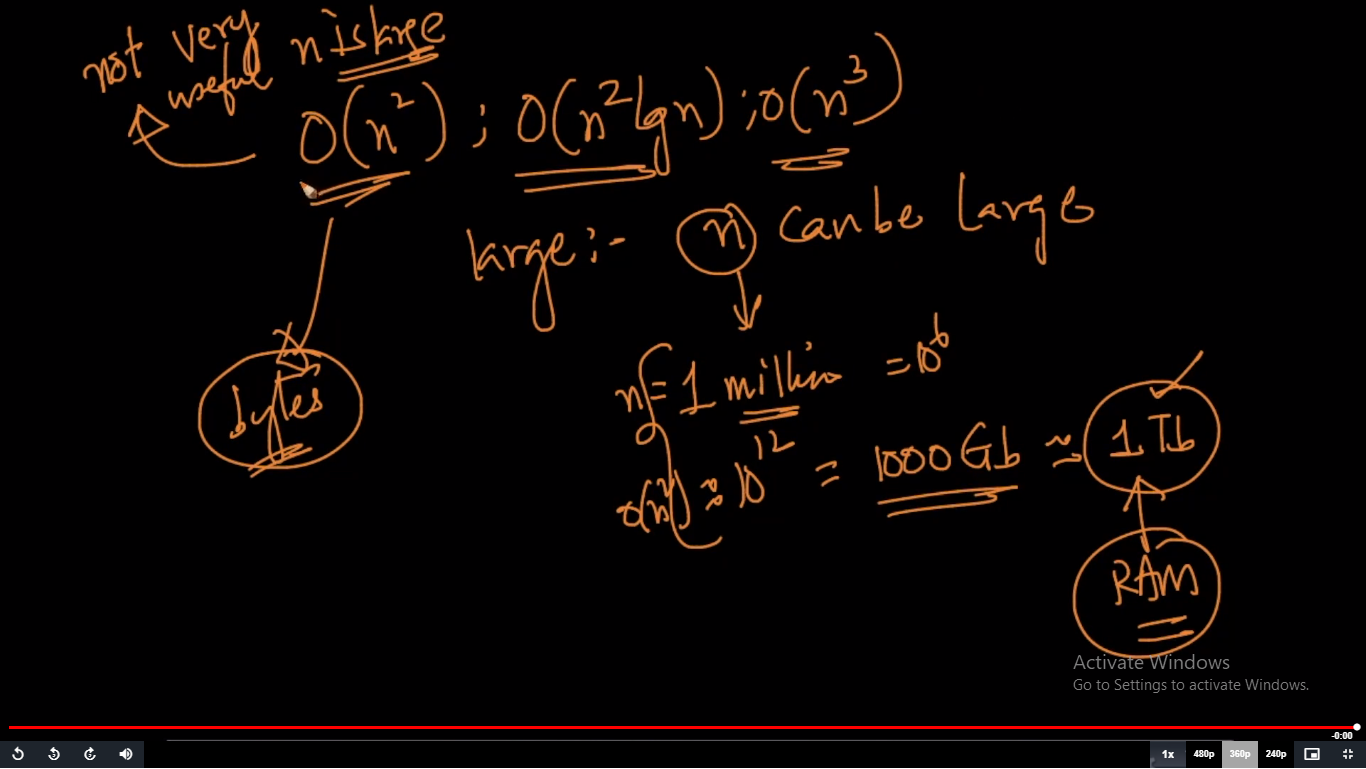 not very n is large
useful
O(n²) ; O(n² lg n) ; O(n³)
large :- n can be large
n = 1 million = 10⁶
bytes
O(n²) ≈ 10¹² = 1000 Gb ≈ 1 Tb
RAM
Activate Windows
Go to Settings to activate Windows.
-0:00
1x 480p 360p 240p